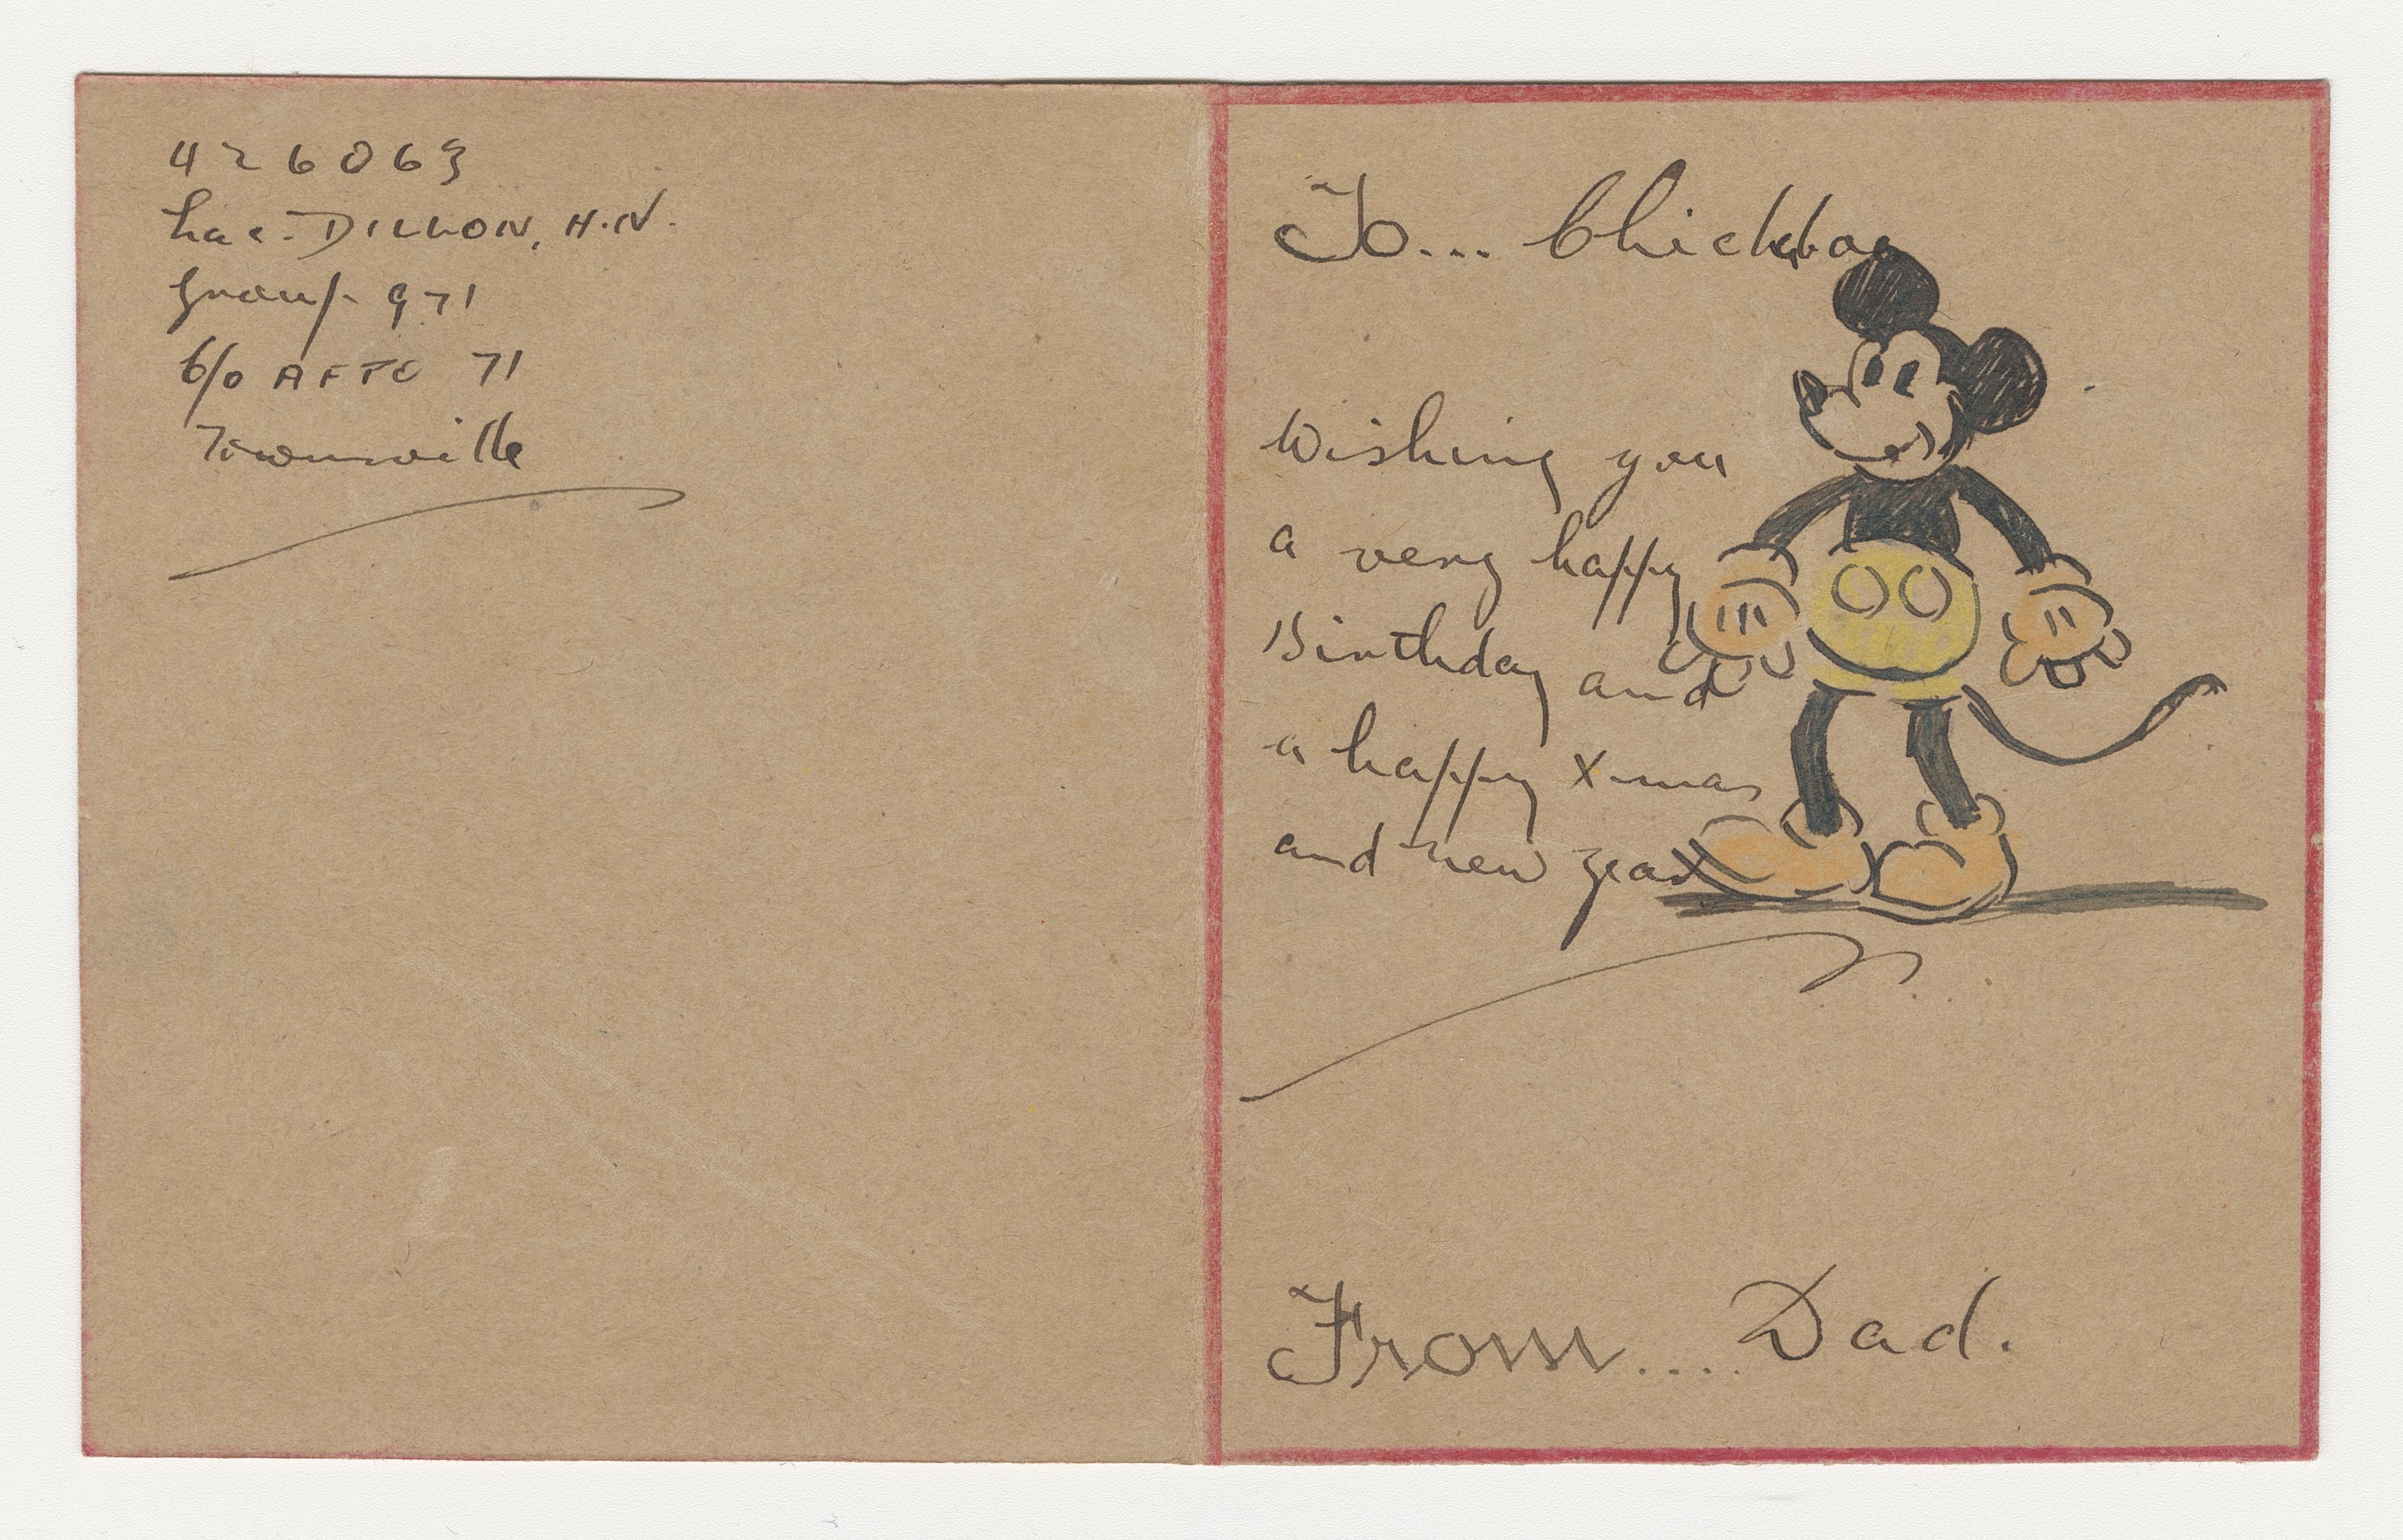 426063
Lac. DILLON, H.N.
Group 971
C/o AFPO 71
Townsville
To...
Wishing you
a very happy
Birthday and
a happy X-mas
and new year
From.... Dad.